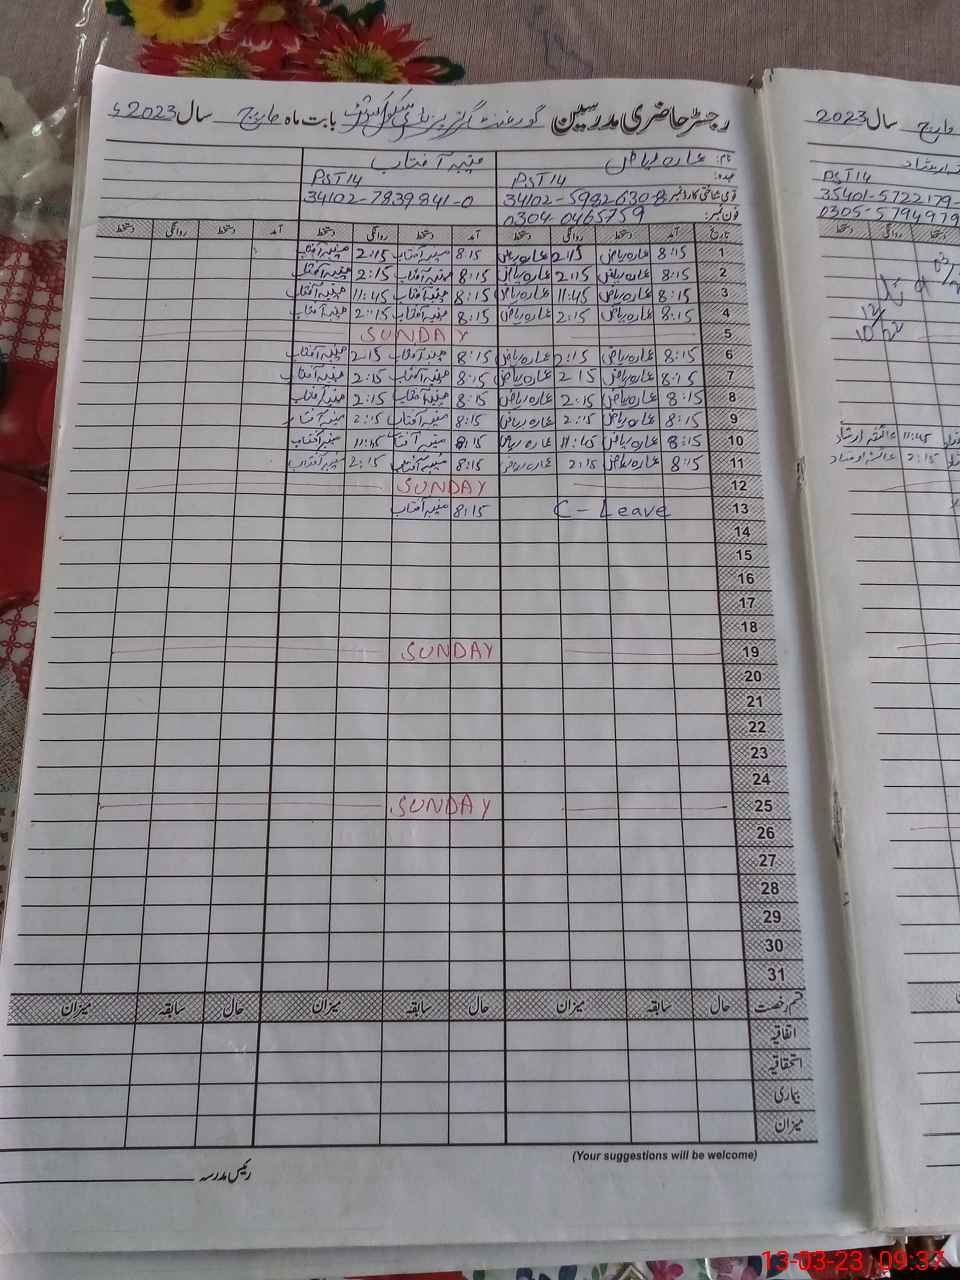 رجسٹر حاضری مدرسین گورنمنٹ گرلز پرائمری سکول بابت ماہ مارچ سال 2023ء
نام: عمارہ ریاض منیبہ آفتاب
عہدہ: PST 14 PST 14
قومی شناختی کارڈ نمبر 34102-7839841-0
فون نمبر: 0304-0465759
تاریخ آمد دستخط روانگی دستخط آمد دستخط روانگی دستخط آمد دستخط روانگی دستخط
1 8:15 عمارہ ریاض 2:15 عمارہ ریاض 8:15 منیبہ آفتاب 2:15 منیبہ آفتاب
2 8:15 عمارہ ریاض 2:15 عمارہ ریاض 8:15 منیبہ آفتاب 2:15 منیبہ آفتاب
3 8:15 عمارہ ریاض 11:45 عمارہ ریاض 8:15 منیبہ آفتاب 11:45 منیبہ آفتاب
4 8:15 عمارہ ریاض 2:15 عمارہ ریاض 8:15 منیبہ آفتاب 2:15 منیبہ آفتاب
5 SUNDAY
6 8:15 عمارہ ریاض 2:15 عمارہ ریاض 8:15 منیبہ آفتاب 2:15 منیبہ آفتاب
7 8:15 عمارہ ریاض 2:15 عمارہ ریاض 8:15 منیبہ آفتاب 2:15 منیبہ آفتاب
8 8:15 عمارہ ریاض 2:15 عمارہ ریاض 8:15 منیبہ آفتاب 2:15 منیبہ آفتاب
9 8:15 عمارہ ریاض 2:15 عمارہ ریاض 8:15 منیبہ آفتاب 2:15 منیبہ آفتاب
10 8:15 عمارہ ریاض 11:45 عمارہ ریاض 8:15 منیبہ آفتاب 11:45 منیبہ آفتاب
11 8:15 عمارہ ریاض 2:15 عمارہ ریاض 8:15 منیبہ آفتاب 2:15 منیبہ آفتاب
12 SUNDAY
13 C-Leave 8:15 منیبہ آفتاب
14
15
16
17
18
19 SUNDAY
20
21
22
23
24
25 SUNDAY
26
27
28
29
30
31
قسم رخصت حال سابقہ میزان حال سابقہ میزان حال سابقہ میزان
اتفاقیہ
استحقاقیہ
بیماری
میزان
(Your suggestions will be welcome)
رئیس مدرسہ
مارچ سال 2023
PST 14
35401-5722179-
0305-5794979
روانگی دستخط
11:45 عائشہ ارشاد
2:15 عائشہ ارشاد
13-03-23 09:37